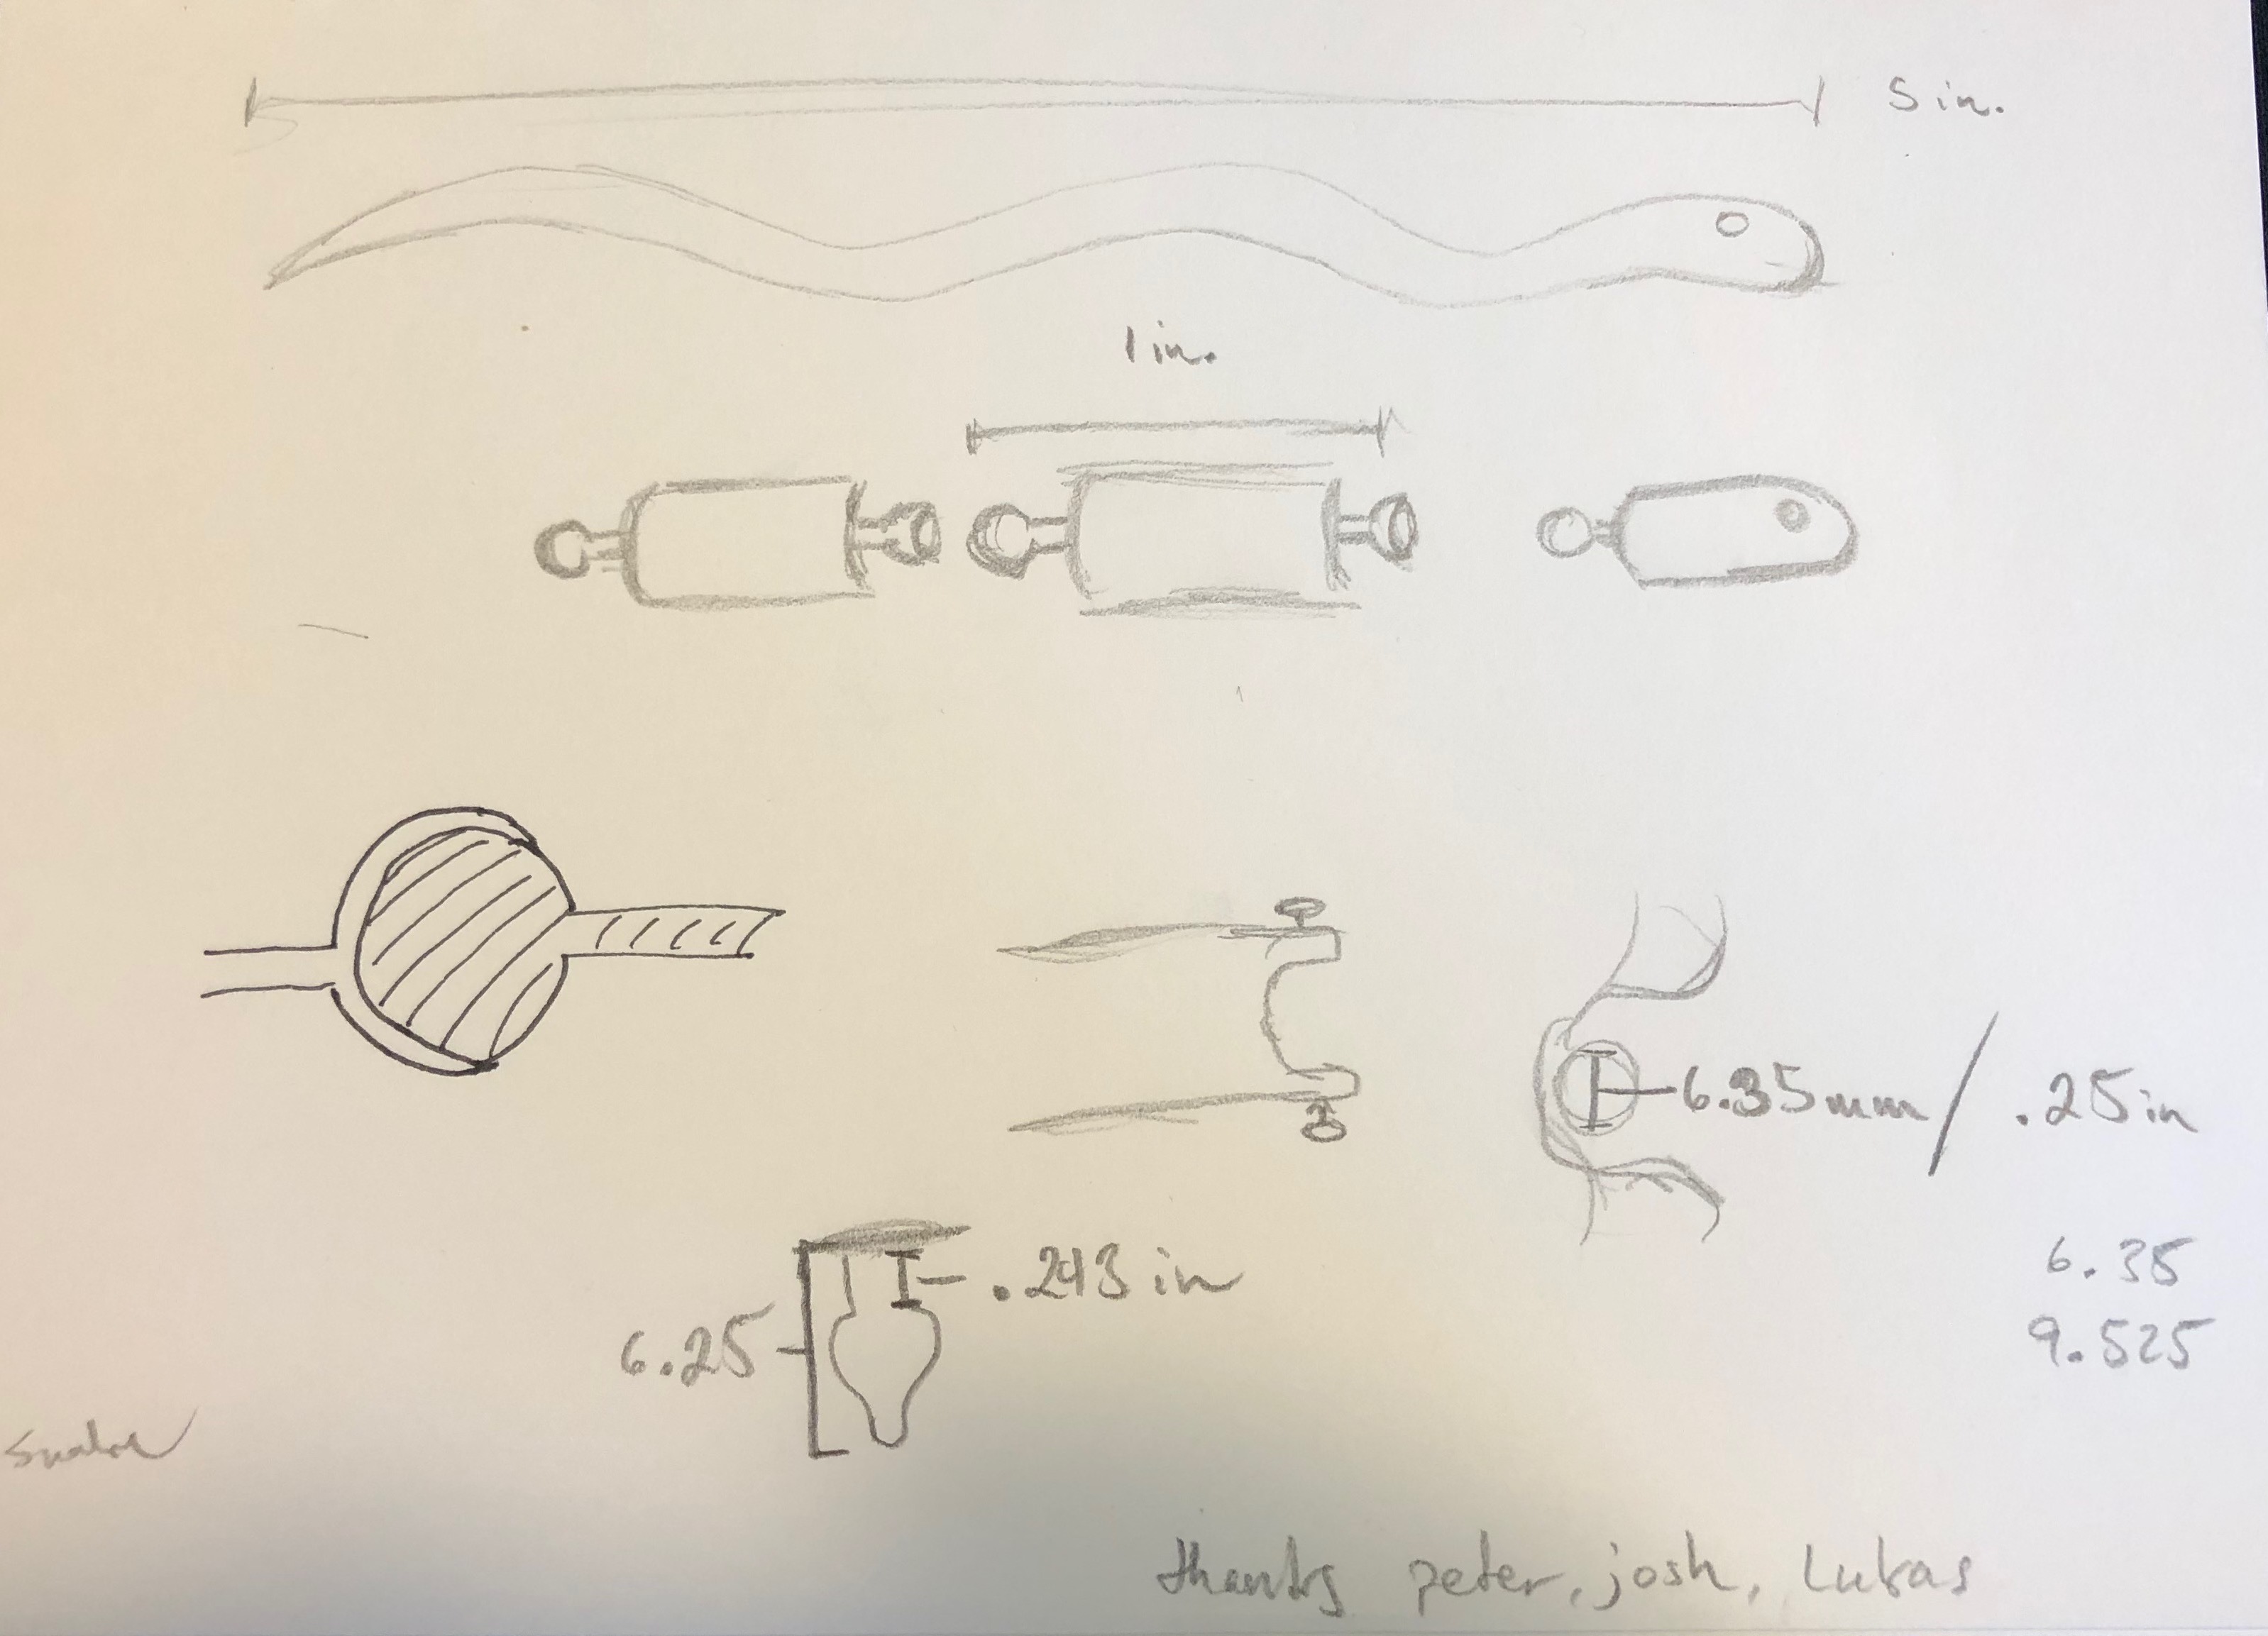 5 in.
1 in.
6.35mm / .25in
.243 in
6.25
6.35
9.525
snake
thanks peter, josh, Lukas